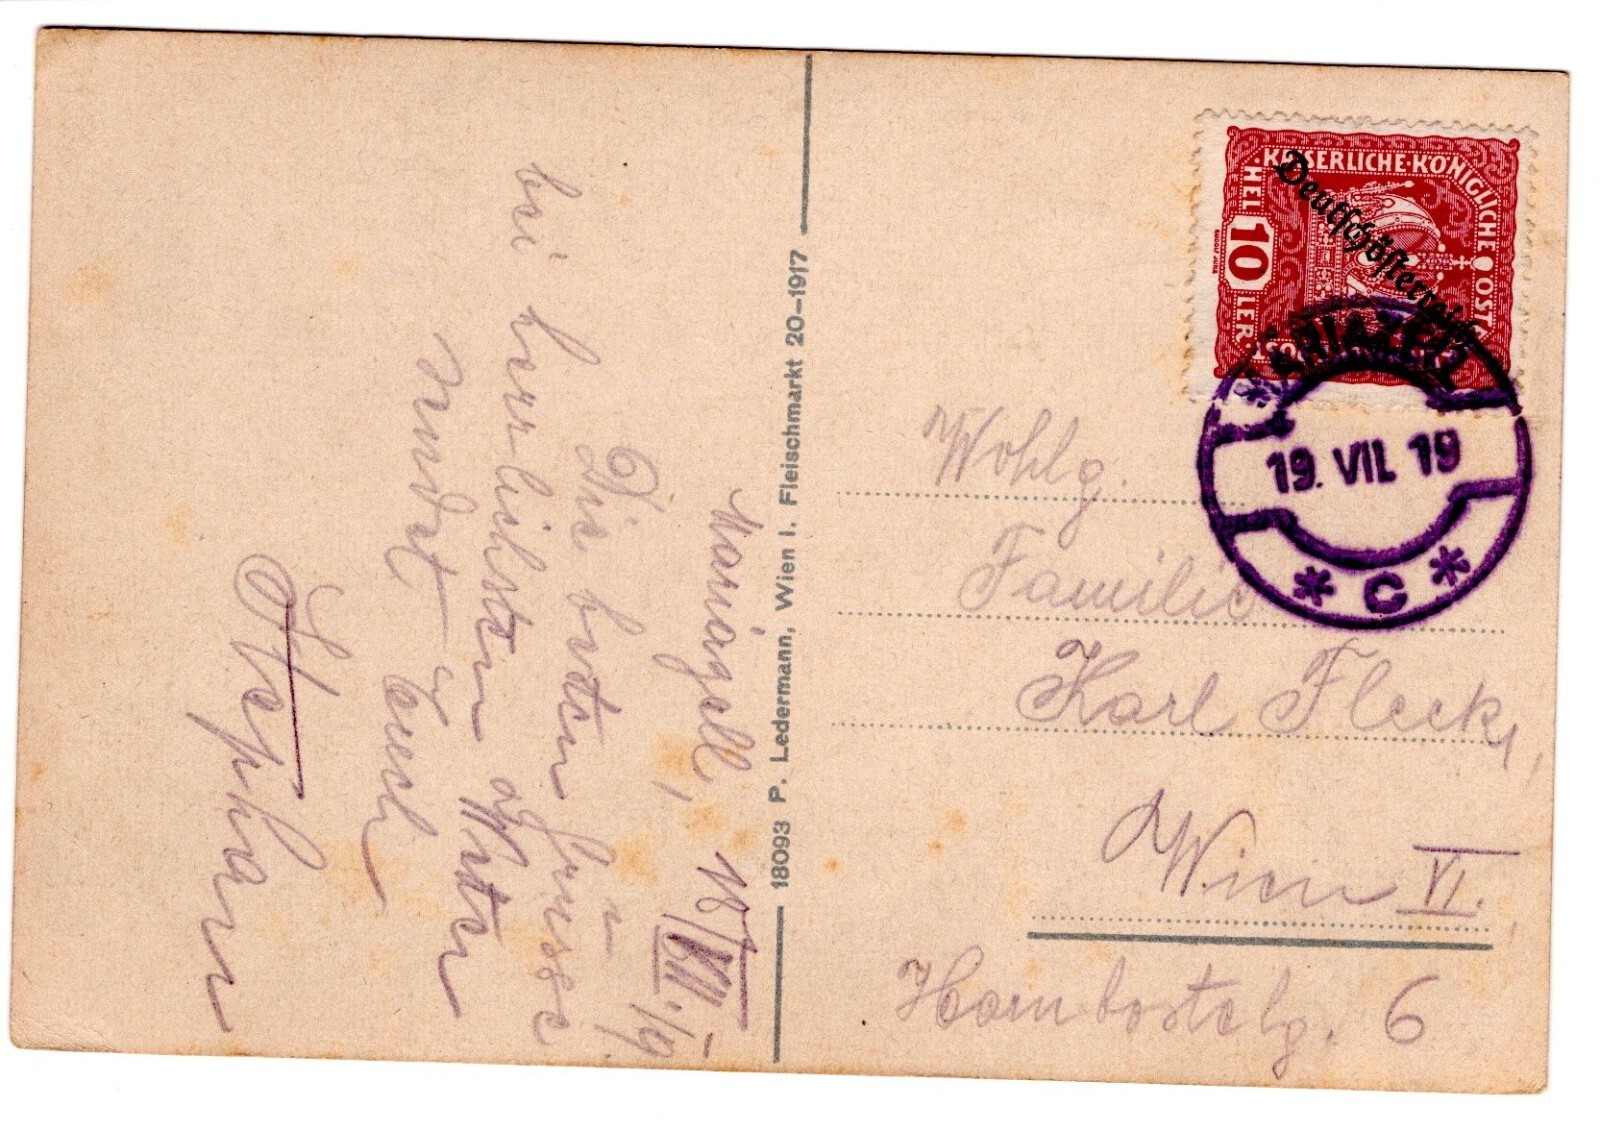 Mariazell, 18/VII./19
Die besten Grüsse
bei herrlichstem Wetter
sendet Euch
Stephan
18093 P. Ledermann, Wien I. Fleischmarkt 20-1917
KAISERLICHE·KÖNIGLICHE
10
HEL LER
Deutschösterreich
19. VII. 19
* C *
Wohlg.
Familie
Karl Fleck,
Wien VI.
Hornbostelg. 6